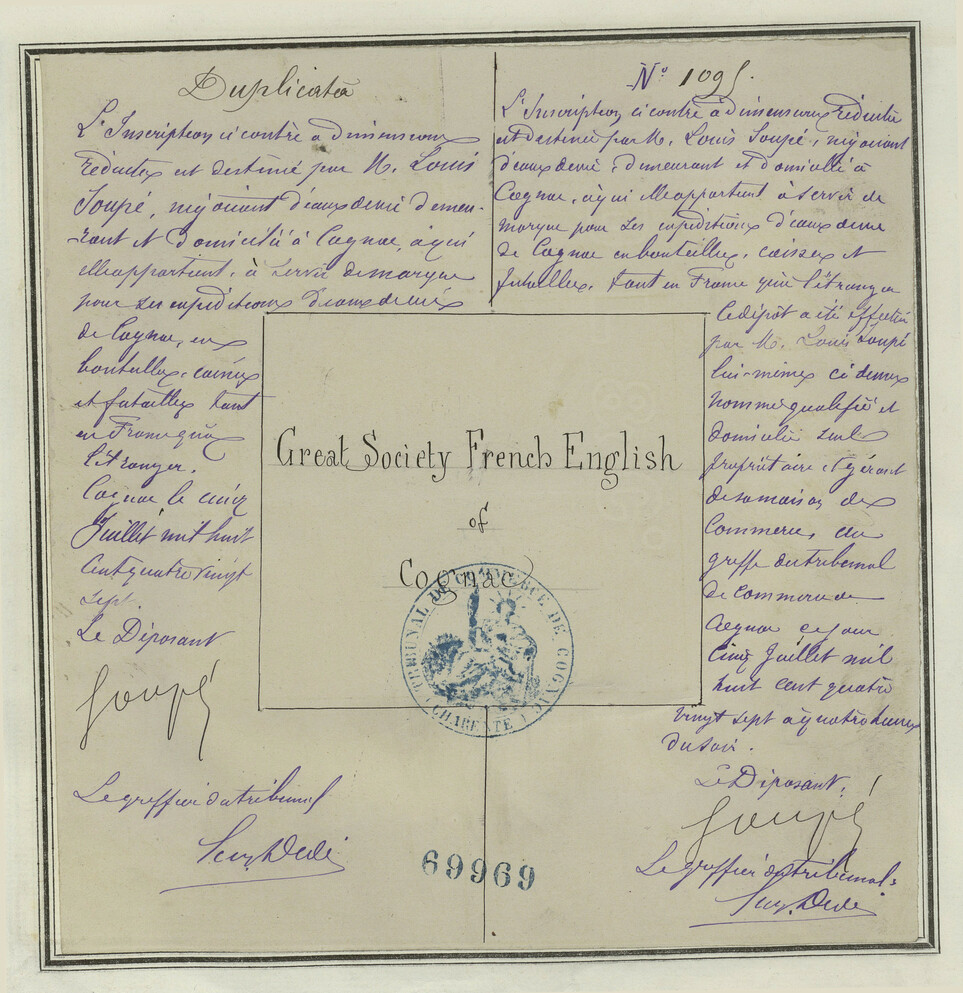 Duplicata
L'Inscription ci contre a dimensions
réduites est destinée par M. Louis
Soupé, négociant d'eaux de vie demeu-
rant et domicilié à Cognac, à qui
elle appartient, à servir de marque
pour ses expéditions d'eaux de vie
de Cognac, en
bouteilles, caisses
et futailles tant
en France qu'à
l'étranger.
Cognac le cinq
Juillet mil huit
cent quatre vingt
sept.
Le Déposant
Soupé
Le greffier du tribunal
N° 1095.
L'Inscription ci contre à dimensions réduites
est destinée par M. Louis Soupé, négociant
d'eaux de vie, demeurant et domicilié à
Cognac, à qui elle appartient à servir de
marque pour ses expéditions d'eaux de vie
de Cognac en bouteilles, caisses et
futailles, tant en France qu'à l'étranger
Le dépôt a été effectué
par M. Louis Soupé
lui-même ci dessus
nommé qualifié et
domicilié seul
propriétaire et gérant
de sa maison de
Commerce, au
greffe du tribunal
de commerce de
Cognac ce jour
cinq Juillet mil
huit cent quatre
vingt sept à quatre heures
du soir.
Le Déposant,
Soupé
Le greffier du tribunal
Great Society French English
of
Cognac
TRIBUNAL DE COMMERCE DE COGNAC
(CHARENTE)
69969